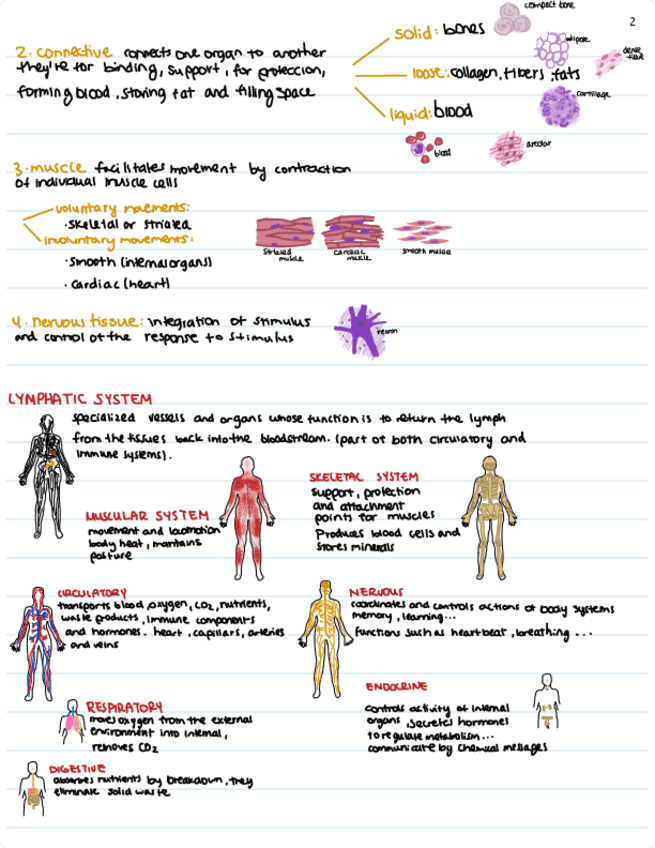 2
2. connective connects one organ to another
they're for binding, support, for proteccion,
forming blood, storing fat and filling space
solid: bones
loose: collagen, fibers, fats
liquid: blood
compact bone
adipose
dense tissue
cartilage
blood
areolar
3. muscle facilitates movement by contraction
of individual muscle cells
voluntary movements:
· skeletal or striated
involuntary movements:
· smooth (internal organs)
· cardiac (heart)
striated
muscle
cardiac
muscle
smooth muscle
4. nervous tissue: integration of stimulus
and control of the response to stimulus
neuron
LYMPHATIC SYSTEM
specialized vessels and organs whose function is to return the lymph
from the tissues back into the bloodstream. (part of both circulatory and
immune systems).
MUSCULAR SYSTEM
movement and locomotion
body heat, mantains
posture
SKELETAL SYSTEM
support, protection
and attachment
points for muscles
Produces blood cells and
stores minerals
CIRCULATORY
transports blood, oxygen, CO2, nutrients,
waste products, immune components
and hormones. heart, capillars, arteries
and veins
NERVOUS
coordinates and controls actions of body systems
memory, learning...
functions such as heartbeat, breathing ...
RESPIRATORY
moves oxygen from the external
environment into internal,
removes CO2
ENDOCRINE
controls activity of internal
organs, secretes hormones
to regulate metabolism...
communicate by chemical messages
DIGESTIVE
absorbes nutrients by breakdown, they
eliminate solid waste